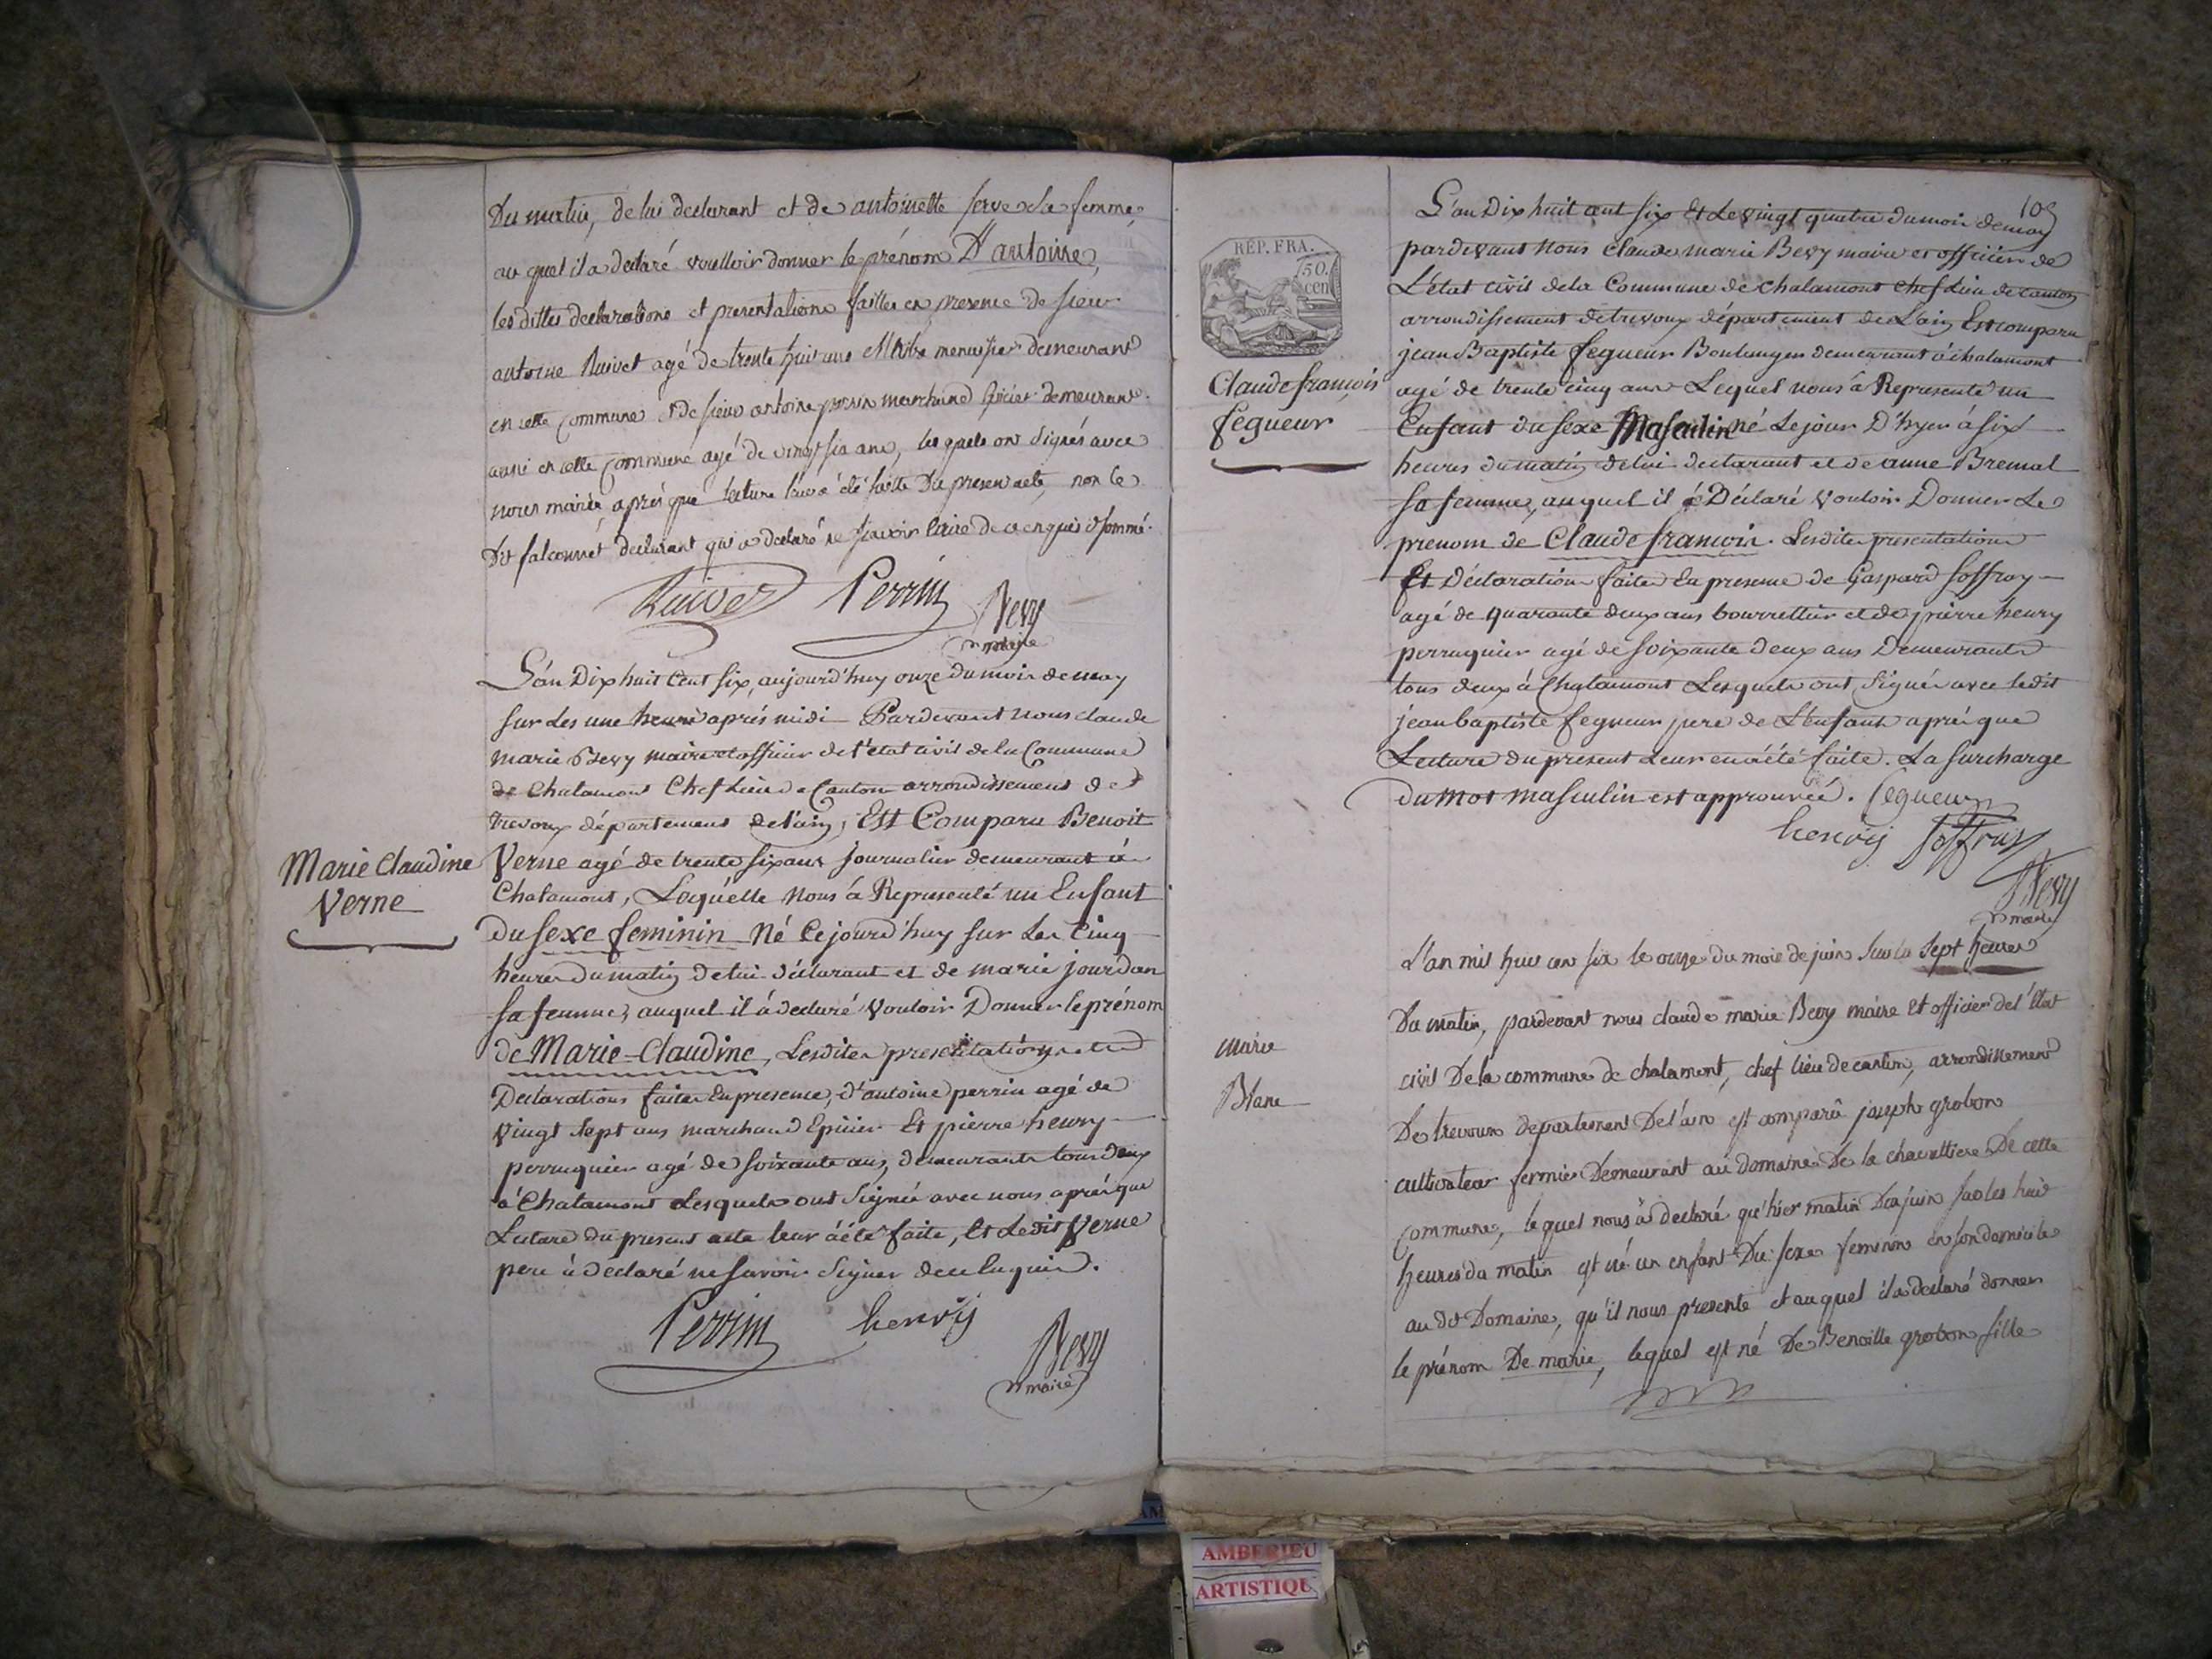 Du matin, de lui declarant et de antoinette serve sa femme,
au quel il a declaré voulloir donner le prénom D'antoine,
les dittes declarations et presentations faittes en presence de sieur
antoine Ruivet agé de trente huit ans Maitre menuisier demeurant
en cette commune et de sieur antoine perrin marchand Epicier demeurant
aussi en cette commune agé de vingt six ans, les quels ont signés avec
nous maire après que lecture leur a été faitte Du present acte, non le
Dit falconnet declarant qui a declaré ne scavoir le faire de ce enquis et sommé.
Ruivet Perrin Bevy
maire
L'an Dix huit Cent six, aujourd'huy onze du mois de may
sur les une heure après midi Pardevant nous claude
marie Bevy maire et officier de l'état civil de la Commune
de Chalamont Chef Lieu de Canton arrondissement de
trevoux département de l'ain, Est Comparu Benoit
Marie Claudine
Verne
Verne agé de trente six ans Journalier demeurant à
Chalamont, Lequelle nous à Representé un Enfant
Du sexe feminin Né Cejourd'huy sur les Cinq
heures du matin de lui déclarant et de marie jourdan
sa femme, auquel il à declaré vouloir Donner le prénom
de Marie-Claudine, Lesdites presentations et
Déclarations faites En presence, d'antoine perrin agé de
vingt sept ans marchand Epicier Et pierre henry
perruquier agé de soixante ans, demeurants tous deux
à Chalamont Lesquels ont signés avec nous après que
Lecture du present acte leur à été faite, Et Ledit Verne
pere à declaré ne savoir signer de ce Enquis.
Perrin henry
Bevy
maire
109
RÉP. FRA.
50.
cen
L'an Dix huit cent six Et Le vingt quatre du mois de may
pardevant Nous Claude marie Bevy maire et officier de
L'état civil de la Commune de Chalamont Chef Lieu de Canton
arrondissement de trevoux département de L'ain Est comparu
jean Baptiste fegueur Boulanger demeurant à chalamont
Claude françois
fegueur
agé de trente cinq ans Lequel nous à Representé un
Enfant du sexe Masculin né Le jour D'hyer à six
heures du matin de lui declarant et de anne Bremal
sa femme, auquel il à Déclaré vouloir Donner Le
prenom de Claude françois. Lesdites presentations
Et Déclarations faites En presence de Gaspard Soffray
agé de quarante deux ans bourrellier et de pierre henry
perruquier agé de soixante deux ans Demeurants
tous deux à Chalamont Lesquels ont signés avec ledit
jean baptiste fegueur pere de L'enfant après que
Lecture du present Leur en à été faite. La surcharge
du mot masculin est approuvée. fegueur
henry Soffray
Bevy
maire
L'an mil huit cen six le onze du mois de juin sur les sept heures
Du matin, pardevant nous claude marie Bevy maire Et officier de l'Etat
marie
Blanc
civil De la commune de chalamont, chef lieu de canton, arrondissement
De trevoux departement De l'ain est comparû joseph grobon
cultivateur fermier Demeurant au domaine De la chavattiere De cette
commune, lequel nous à declaré qu'hier matin Dix juin sur les huit
heures du matin est né un enfant Du sexe feminin en son domicile
au dit Domaine, qu'il nous presente et auquel il a declaré donner
le prénom De marie, lequel est né De Benoitte grobon fille